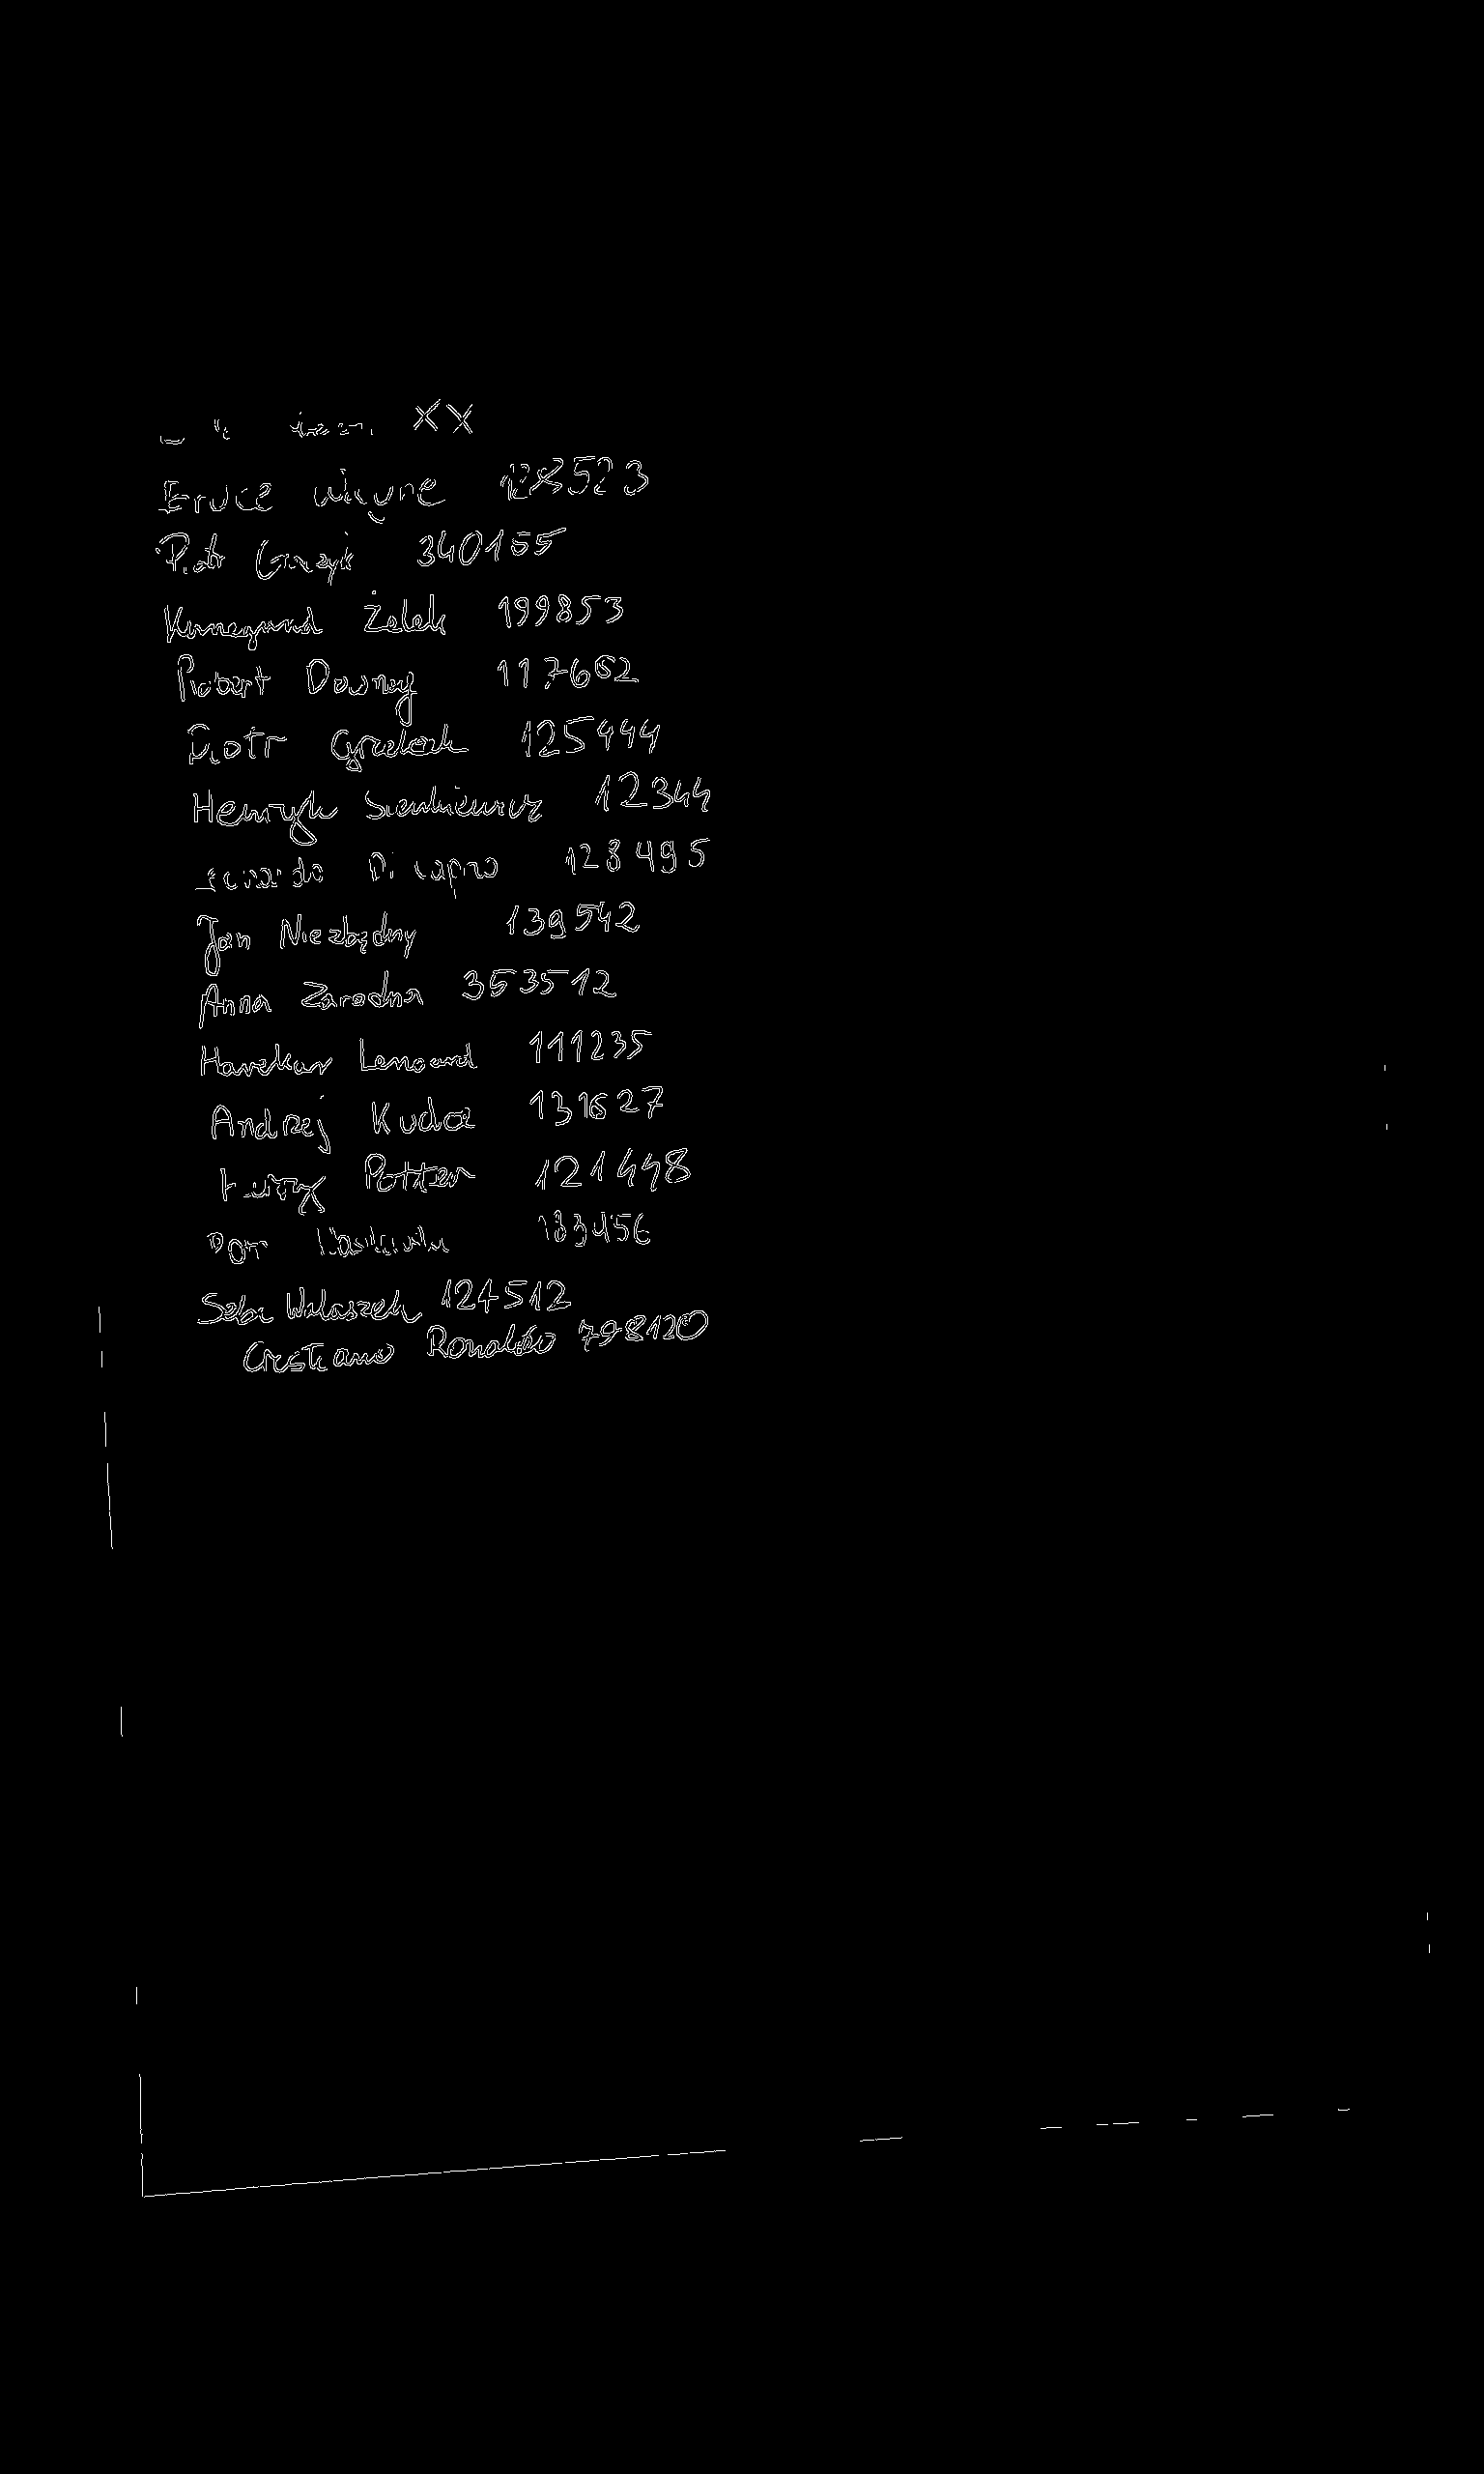 XX
Bruce Wayne
Piotr 340155
Kunegund Żelek 199853
Robert Downey 117662
Piotr Grzelak 125444
Henryk Sienkiewicz 12344
Leonardo Di Caprio 128495
Jan Niezbędny 139542
Anna Zaradna 353512
Lenoard 111235
Andrzej Kudoż 131627
Harry Potter 121448
133456
Seba Walaszek 124512
Crestiano Ronaldo 798120